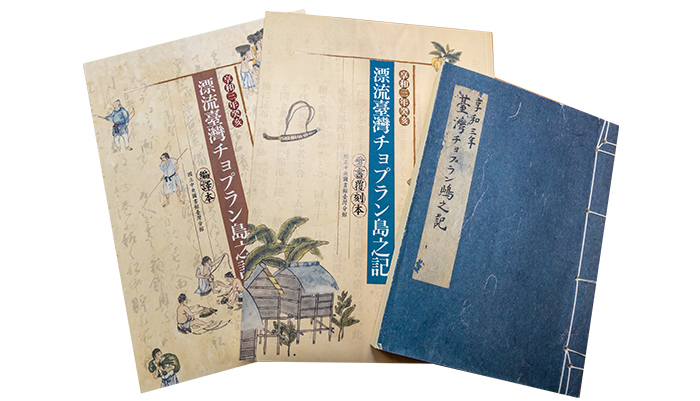 享和三年癸亥
漂流臺灣チョプラン島之記
編譯本
國立中央圖書館臺灣分館
享和三年癸亥
漂流臺灣チョプラン島之記
古書覆刻本
國立中央圖書館臺灣分館
享和三年
臺灣チョプラン嶋之記